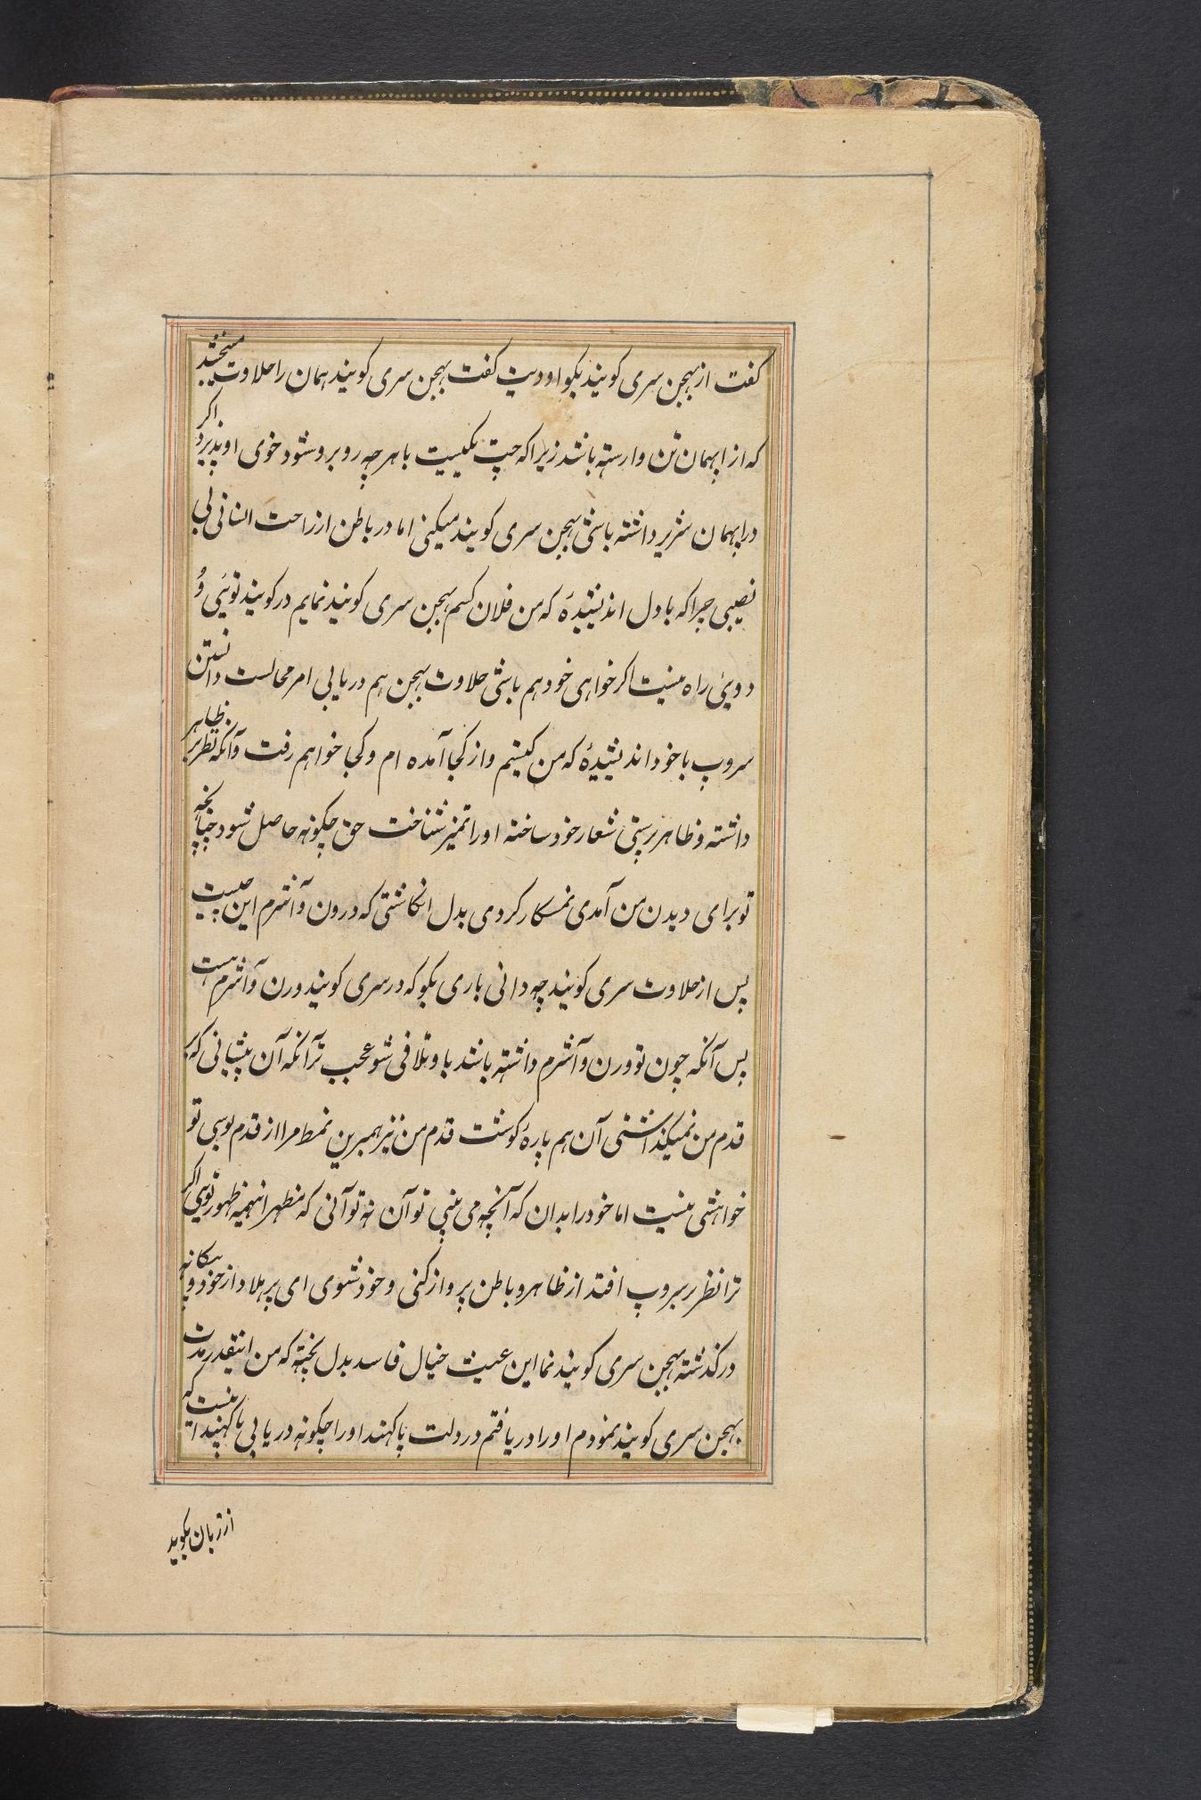 گفت از بهجن سری کویند بکو اودیت گفت بهجن سری کویند همان را حلاوت میبخشد
که از ابهمان تن وارسته باشد زیرا که چت یکیست با هر چه روبرو شود خوی او پذیرد اکر
در ابهمان شریر داشته باشی بهجن سری کویند میکنی اما در باطن از راحت انسانی بی
نصیبی چرا که با دل اندیشیدهٔ که من فلان کسم بهجن سری کویند نمایم در کویند توئی و
دوئی راه نیست اکر خواهی خود هم باشی حلاوت بهجن هم دریابی امر محالست دانستن
سروپ با خود اندیشیدهٔ که من کیستم و از کجا آمده ام و کجا خواهم رفت و آنکه نظر بر ظاهر
داشته و ظاهر پرستی شعار خود ساخته او را تمیز شناخت حق چکونه حاصل شود چنانچه
تو برای دیدن من آمدی نمسکار کردی بدل انکاشتی که درون و آشرم این چیست
پس از حلاوت سری کویند چه دانی باری بکو که در سری کویند ورن و آشرم هست
پس آنکه چون تو ورن و آشرم داشته باشد با و تلافی شو عجب تر آنکه آن پیشانی که بر
قدم من نمیکذاشتی آن هم پارهٔ کوشت قدم من نیز همبرین نمط مرا از قدم بوسی تو
خواهشی نیست اما خود را بدان که آنچه می بینی تو آن نهٔ تو آنی که مظهر اینهمه ظهور توئی اکر
ترا نظر بر سروپ افتد از ظاهر و باطن پرواز کنی و خود شوی ای پرهلاد از خود و بیکانه
در کذشته بهجن سری کویند نما این عبث خیال فاسد بدل پخته که من اینقدر مدت
بهجن سری کویند نمودم او را دریافتم در دولت پاکهند او را چکونه دریابی پاکهند انیست که
از زبان بکوید